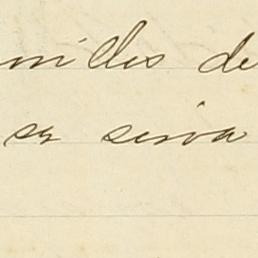 milles de
se sirva